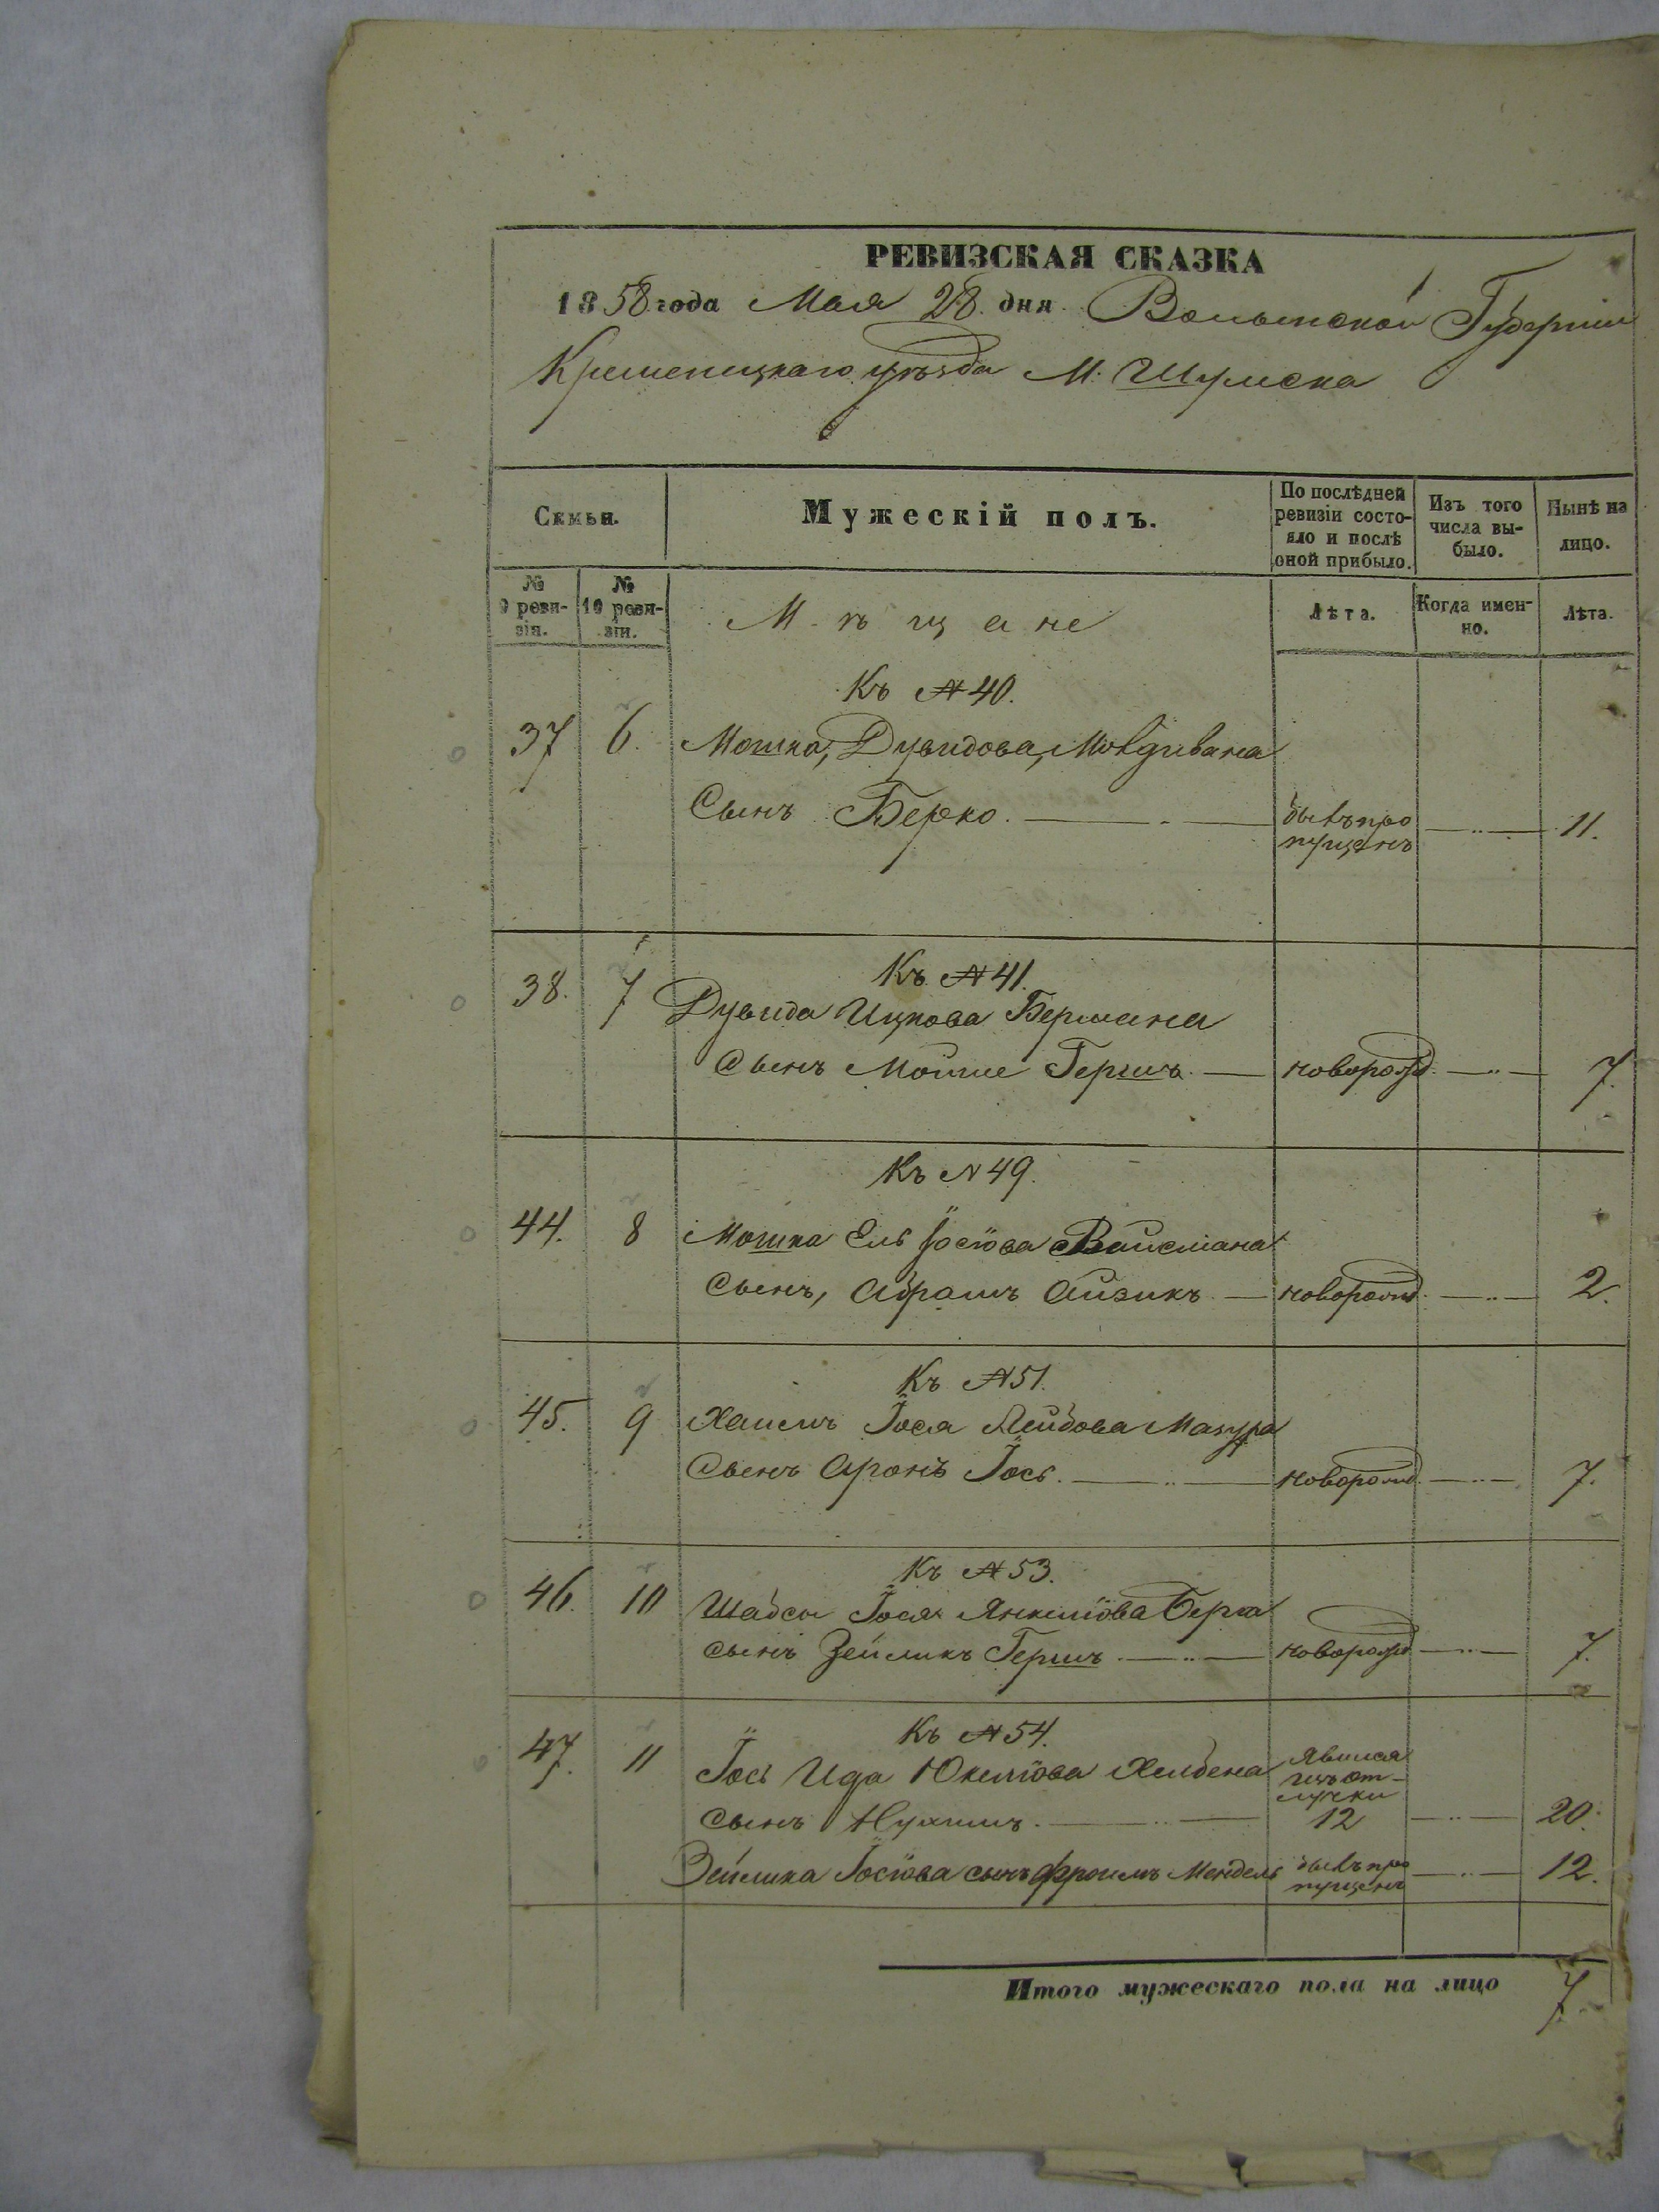 РЕВИЗСКАЯ СКАЗКА
1858 года Мая 28. дня Волынской Губерніи
Кременецкаго уѣзда М. Шумска
Семьи.
Мужескій полъ.
По послѣдней ревизіи состояло и послѣ оной прибыло.
Изъ того числа выбыло.
Нынѣ на лицо.
№ 9 ревизіи.
№ 10 ревизіи.
Мѣщане
Лѣта.
Когда именно.
Лѣта.
Къ № 40.
37 6. Мошка, Дувидова,
Сынъ Берко. былъ пропущенъ 11.
Къ № 41.
38. 7 Дувида Ицкова Бермана
Сынъ Мошке Гершъ новорожд. 7.
Къ N 49.
44. 8 Мошка Ель Іосіова Вайсмана
Сынъ, Абрамъ Айзикъ новорожд. 2.
Къ № 51.
45. 9 Хаимъ Іося Лейбова Мазура
Сынъ Аронъ Іось. новорожд. 7.
Къ № 53.
46. 10 Шабсы Іося Янкеліова Берга
сынъ Зейликъ Гершъ новорожд 7.
Къ № 54.
47. 11 Іось Ида Юкеліова
сынъ Нухимъ. явился изъ отлучки 12 20.
Зейлика Іосіова сынъ Фроимъ Мендель былъ пропущенъ 12.
Итого мужескаго пола на лицо 7.